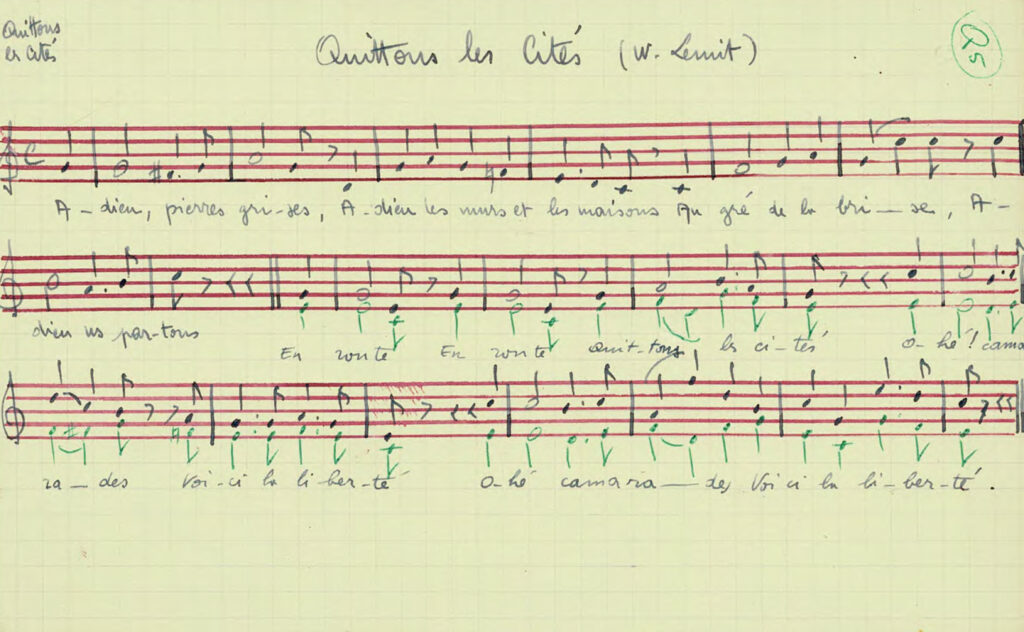 Quittons
les Cités
Quittons les Cités (W. Lemit)
Q5
A - dieu, pierres gri-ses, A-dieu les murs et les maisons Au gré de la bri-se, A-
dieu ns par-tons
En route En route Quit-tons les ci-tés O-hé! cama
ra-des Voi-ci la li-ber-té O-hé camara-des Voi ci la li-ber-té.